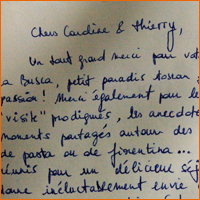 Chers Caroline & Thierry,
Un tout grand merci pour vot
a Busca, petit paradis toscan
passion ! Merci également pour le
"visite" prodigués, les anecdote
moments partagés autour des
de pasta ou de fiorentina...
réunis pour un délicieux séj
donne inéluctablement envie